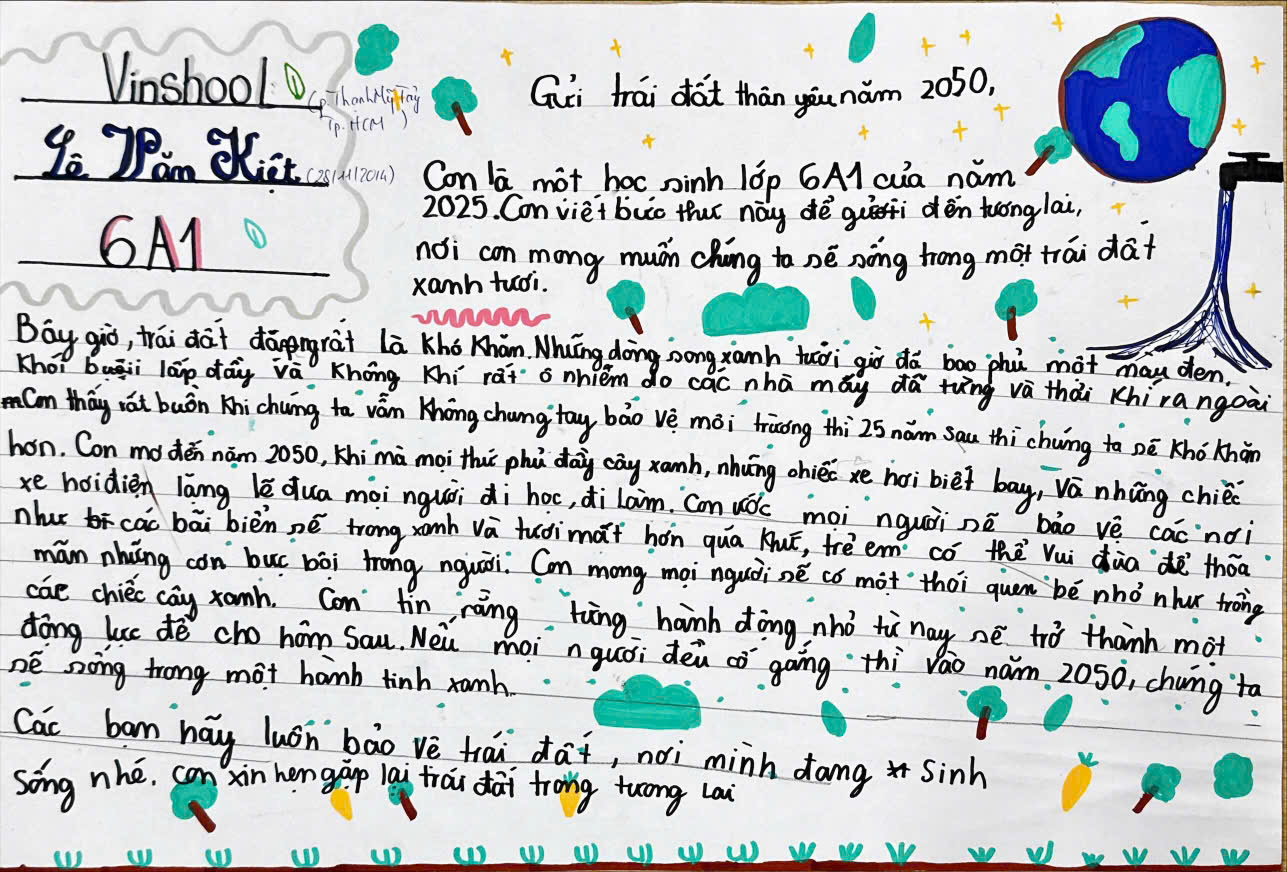 Vinshool
(p. Thanh Mỹ Tây
Tp. HCM )
Lê Văn Kiệt (28/11/2014)
6A1
Gửi trái đất thân yêu năm 2050,
Con là một học sinh lớp 6A1 của năm
2025. Con viết bức thư này để gửi đến tương lai,
nơi con mong muốn chúng ta sẽ sống trong một trái đất
xanh tươi.
Bây giờ, trái đất đang rất là khó khăn. Những dòng song xanh tươi giờ đã bao phủ một màu đen.
Khói bụi lấp đầy và không khí rất ô nhiễm do các nhà máy đã từng và thải khí ra ngoài
Con thấy rất buồn khi chúng ta vẫn không chung tay bảo vệ môi trường thì 25 năm sau thì chúng ta sẽ khó khăn
hơn. Con mơ đến năm 2050, khi mà mọi thứ phủ đầy cây xanh, những chiếc xe hơi biết bay, và những chiếc
xe hơi điện lặng lẽ đưa mọi người đi học, đi làm. Con ước mọi người sẽ bảo vệ các nơi
như các bãi biển sẽ trong xanh và tươi mát hơn quá khứ, trẻ em có thể vui đùa để thỏa
mãn những cơn bực bội trong người. Con mong mọi người sẽ có một thói quen bé nhỏ như trồng
các chiếc cây xanh. Con tin rằng từng hành động nhỏ từ nay sẽ trở thành một
động lực để cho hôm sau. Nếu mọi người đều cố gắng thì vào năm 2050, chúng ta
sẽ sống trong một hành tinh xanh.
Các bạn hãy luôn bảo vê trái đất, nơi mình đang sinh
sống nhé. con xin hẹn gặp lại trái đất trong tương lai